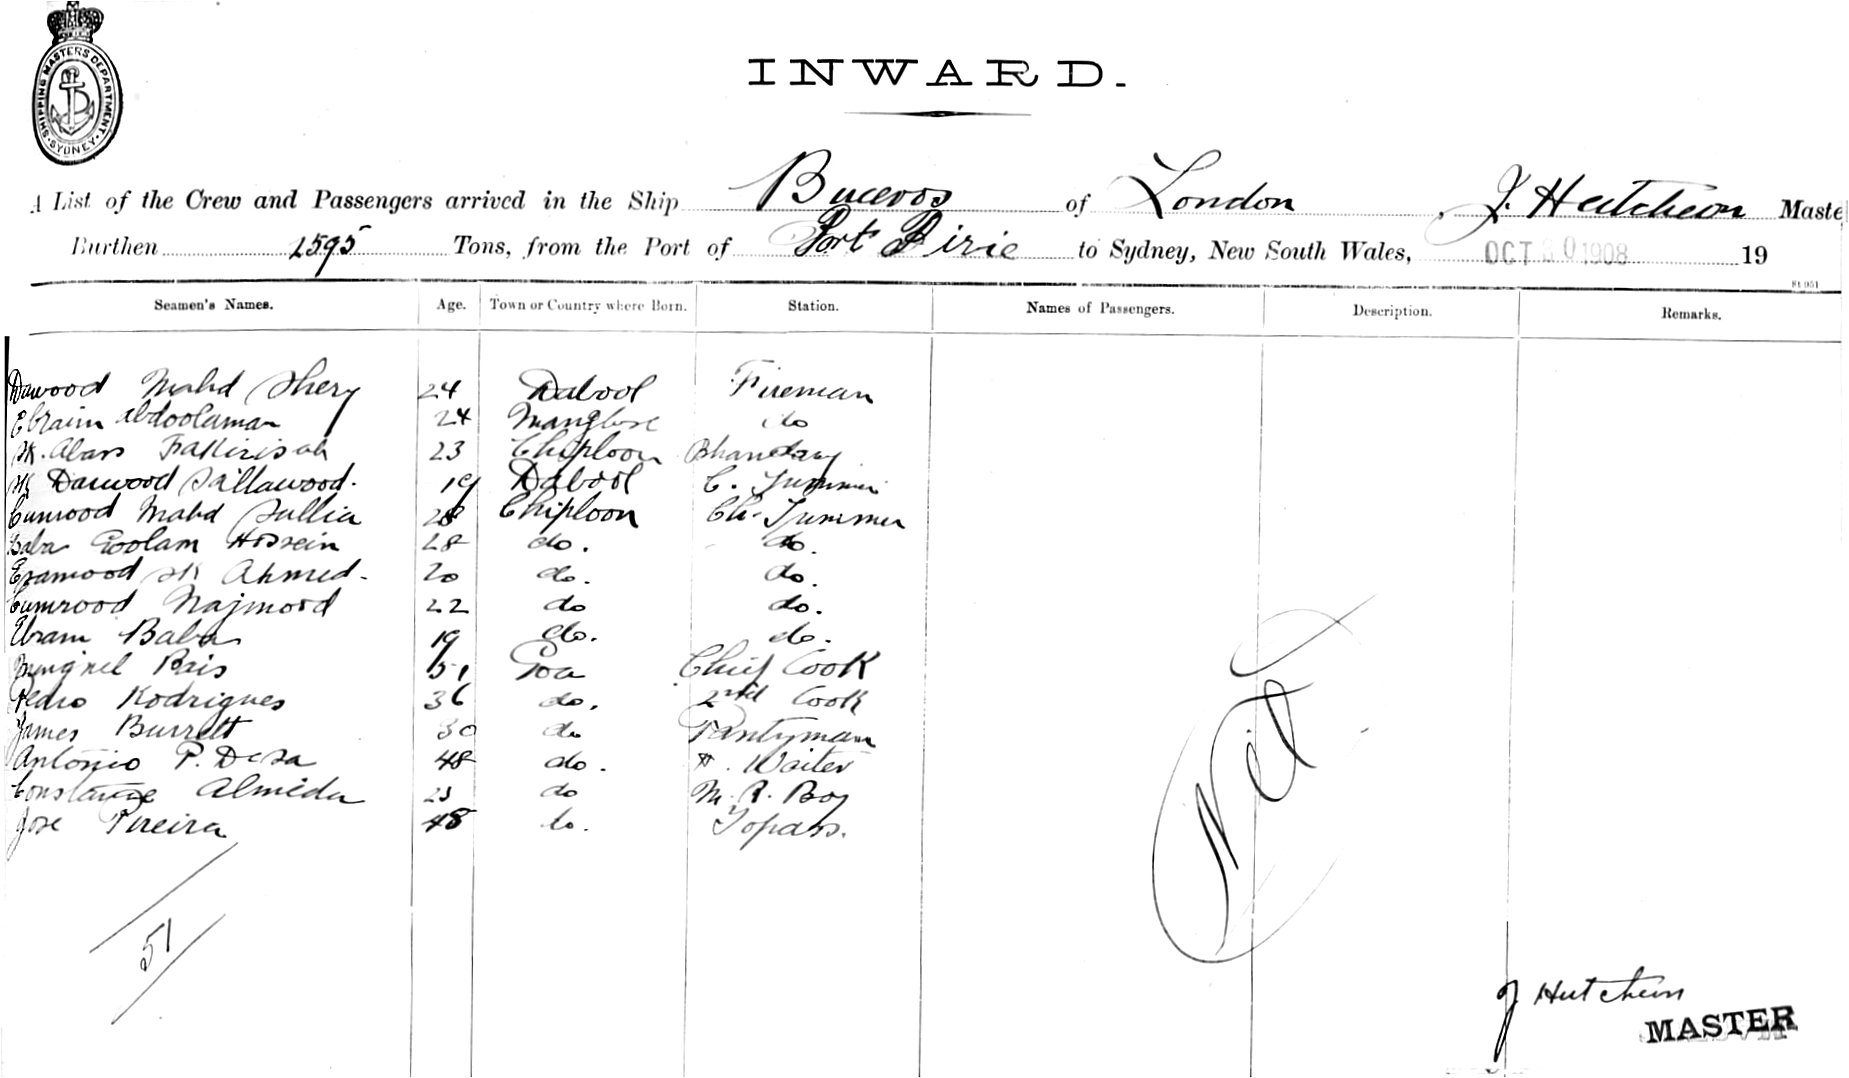 SHIPPING MASTERS DEPARTMENT SYDNEY
INWARD.
A List of the Crew and Passengers arrived in the Ship Buceros of London, J. Hutcheon Maste
Burthen 2595 Tons, from the Port of Port Pirie to Sydney, New South Wales, OCT 30 1908 19
Seamen's Names. Age. Town or Country where Born. Station. Names of Passengers. Description. Remarks.
Dawood Mahd Shery 24 Dabool Fireman
Ebraim Abdoolaman 24 Manglore do
Sk. Abas Fakirisah 23 Chiploon Bhandary
Sk Dawood Sallawood. 19 Dabool C. Trimmer
Cumrood Mahd Sullia Chiploon Ch. Trimmer
Baba Goolam Hossein 28 do. do.
Esamood Sk Ahmed. 20 do. do.
Cumrood Najmood 22 do do.
Ebram Baba 19 do. do.
Pais 51 Goa Chief Cook
Pedro Rodrigues 36 do. 2nd Cook
James Burrett 30 do Pantryman
Antonio P. Desa 48 do. Waiter
Almeida do M. R. Boy
Jose Pereira 48 do. Topass.
Nil
51
J Hutcheon
MASTER